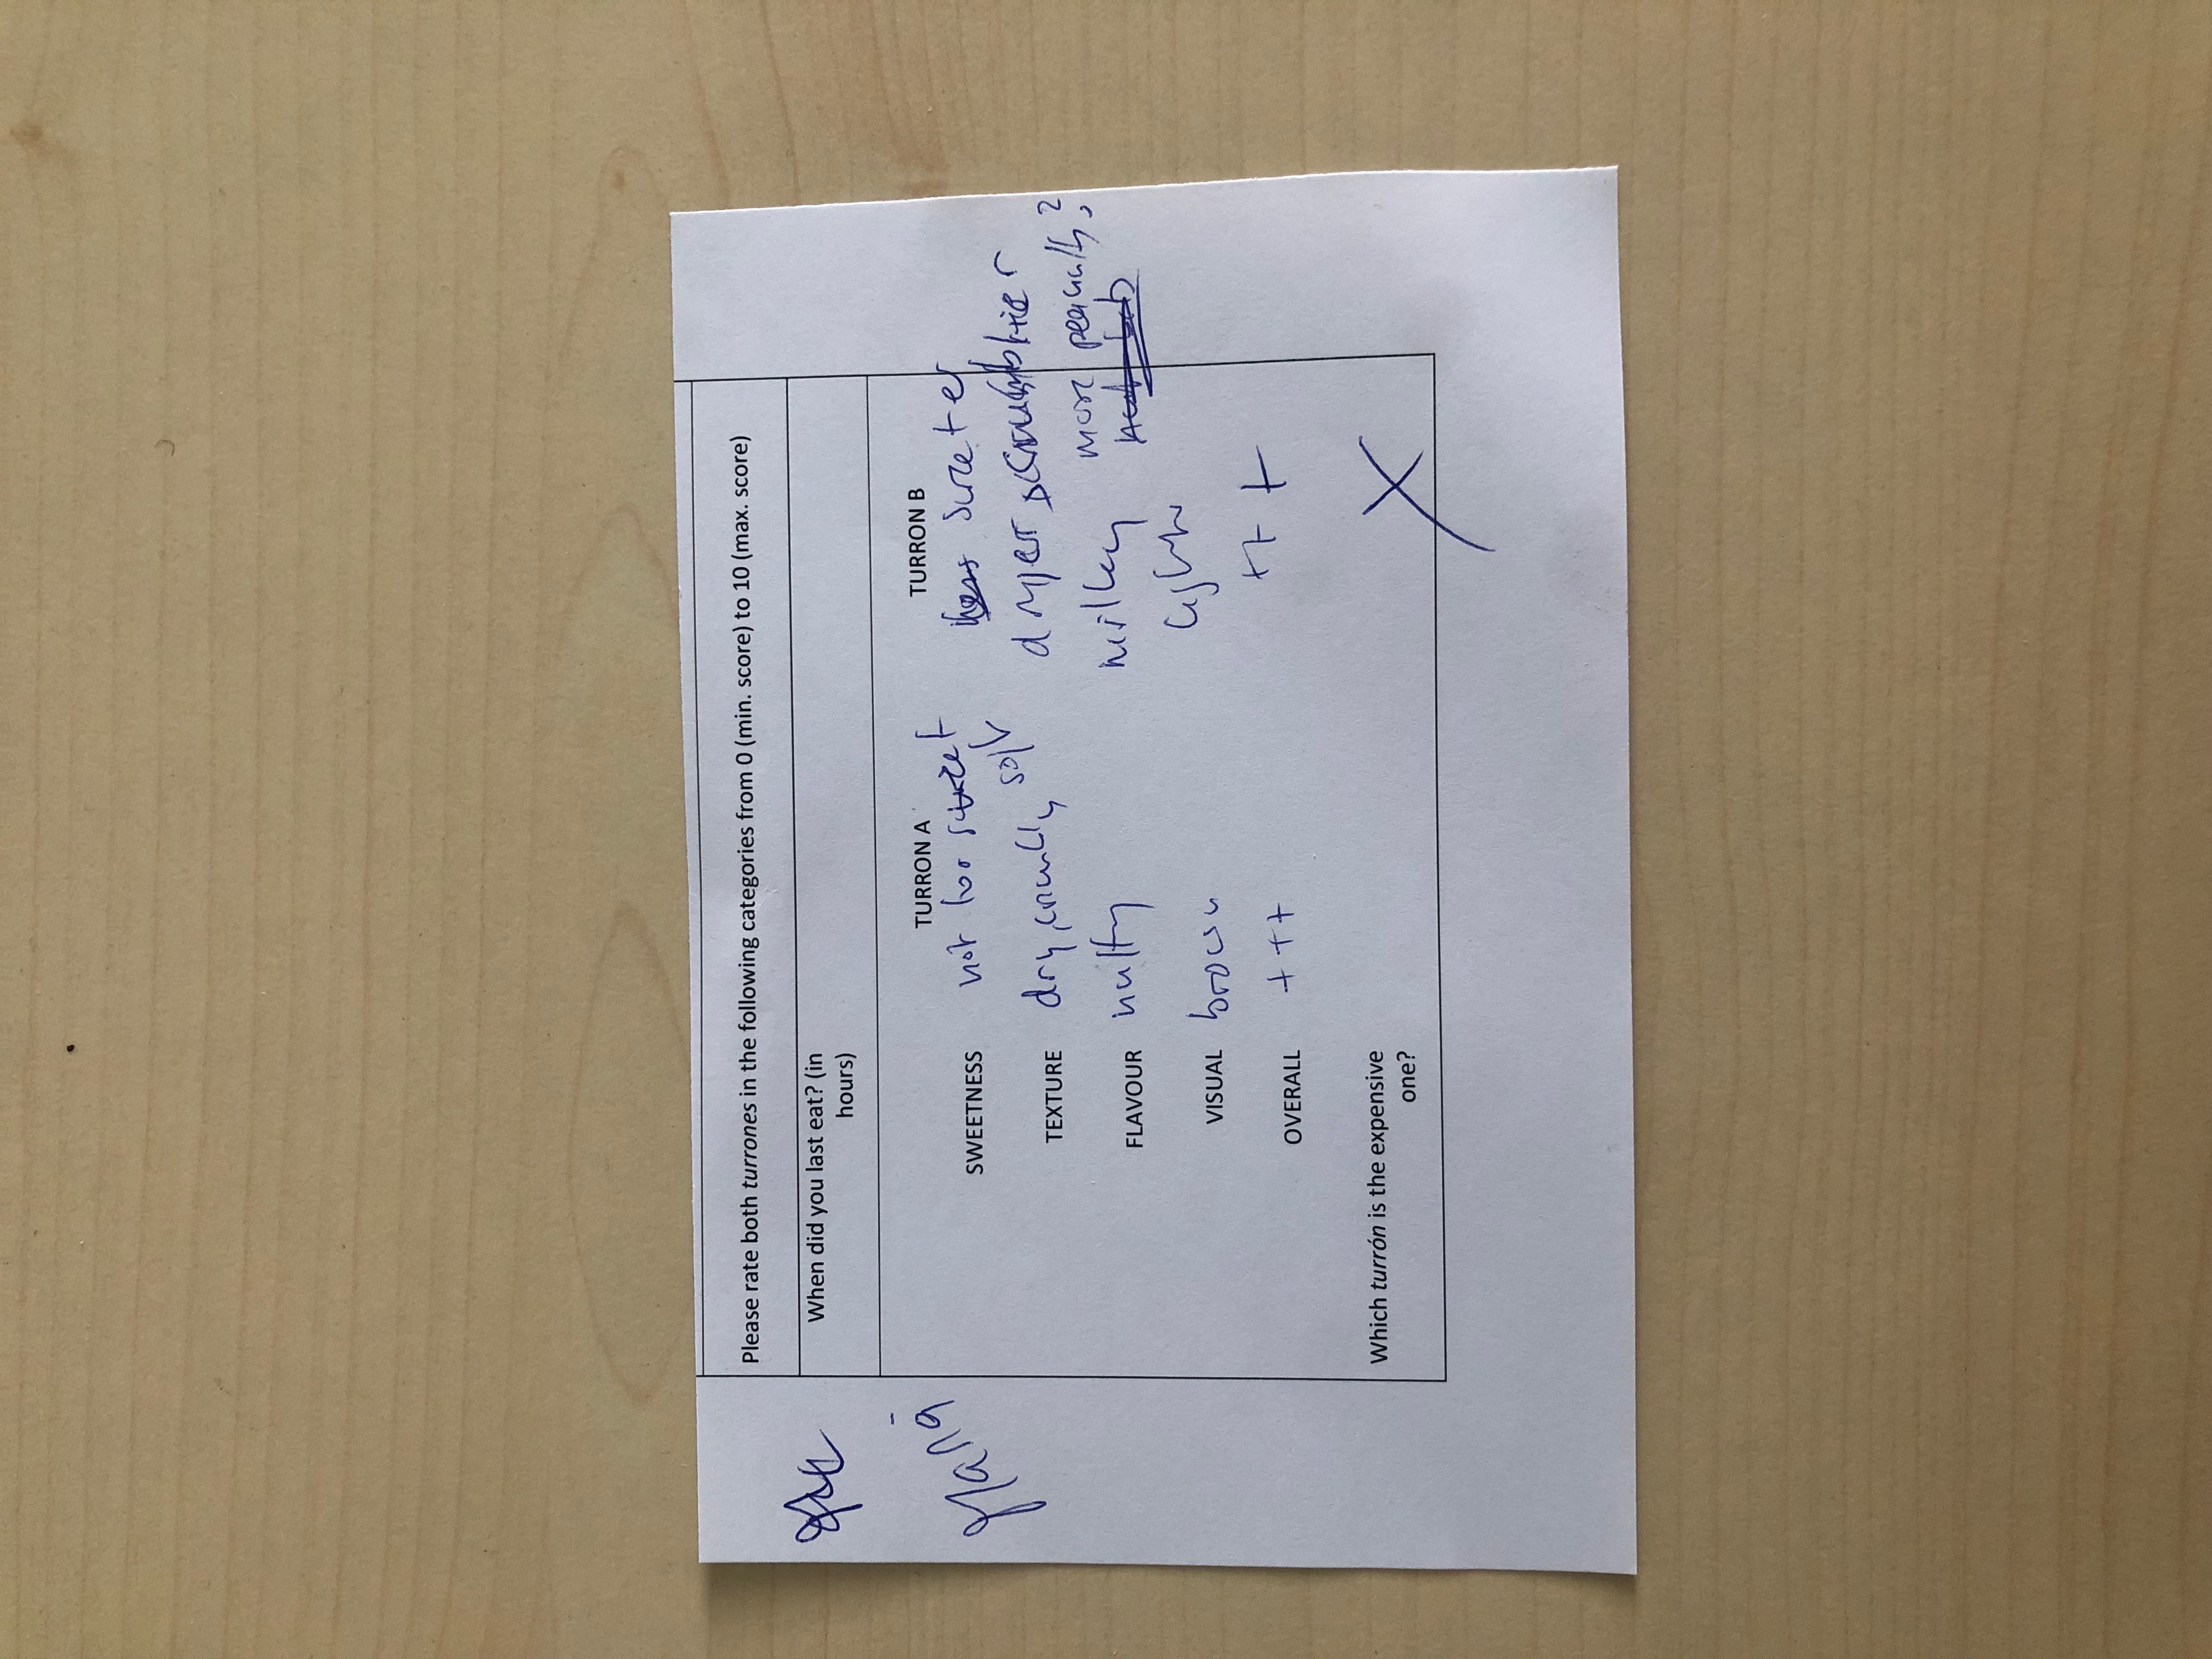 Please rate both turrones in the following categories from 0 (min. score) to 10 (max. score)
When did you last eat? (in
hours)
TURRON A TURRON B
SWEETNESS not too sweet sweeter
TEXTURE dry, crumbly
more peanutty?
FLAVOUR nutty
VISUAL brown lighter
OVERALL +++ +++
Which turrón is the expensive
one? X